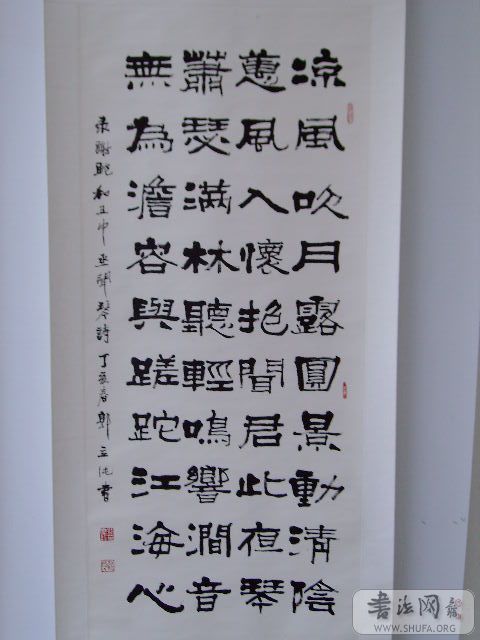 涼風吹月露圓景動清陰
蕙風入懷抱聞君此夜琴
蕭瑟滿林聽輕鳴響澗音
無為澹容與蹉跎江海心
录謝朓和王中丞聞琴詩 丁亥春 郭立書
書法网
WWW.SHUFA.ORG